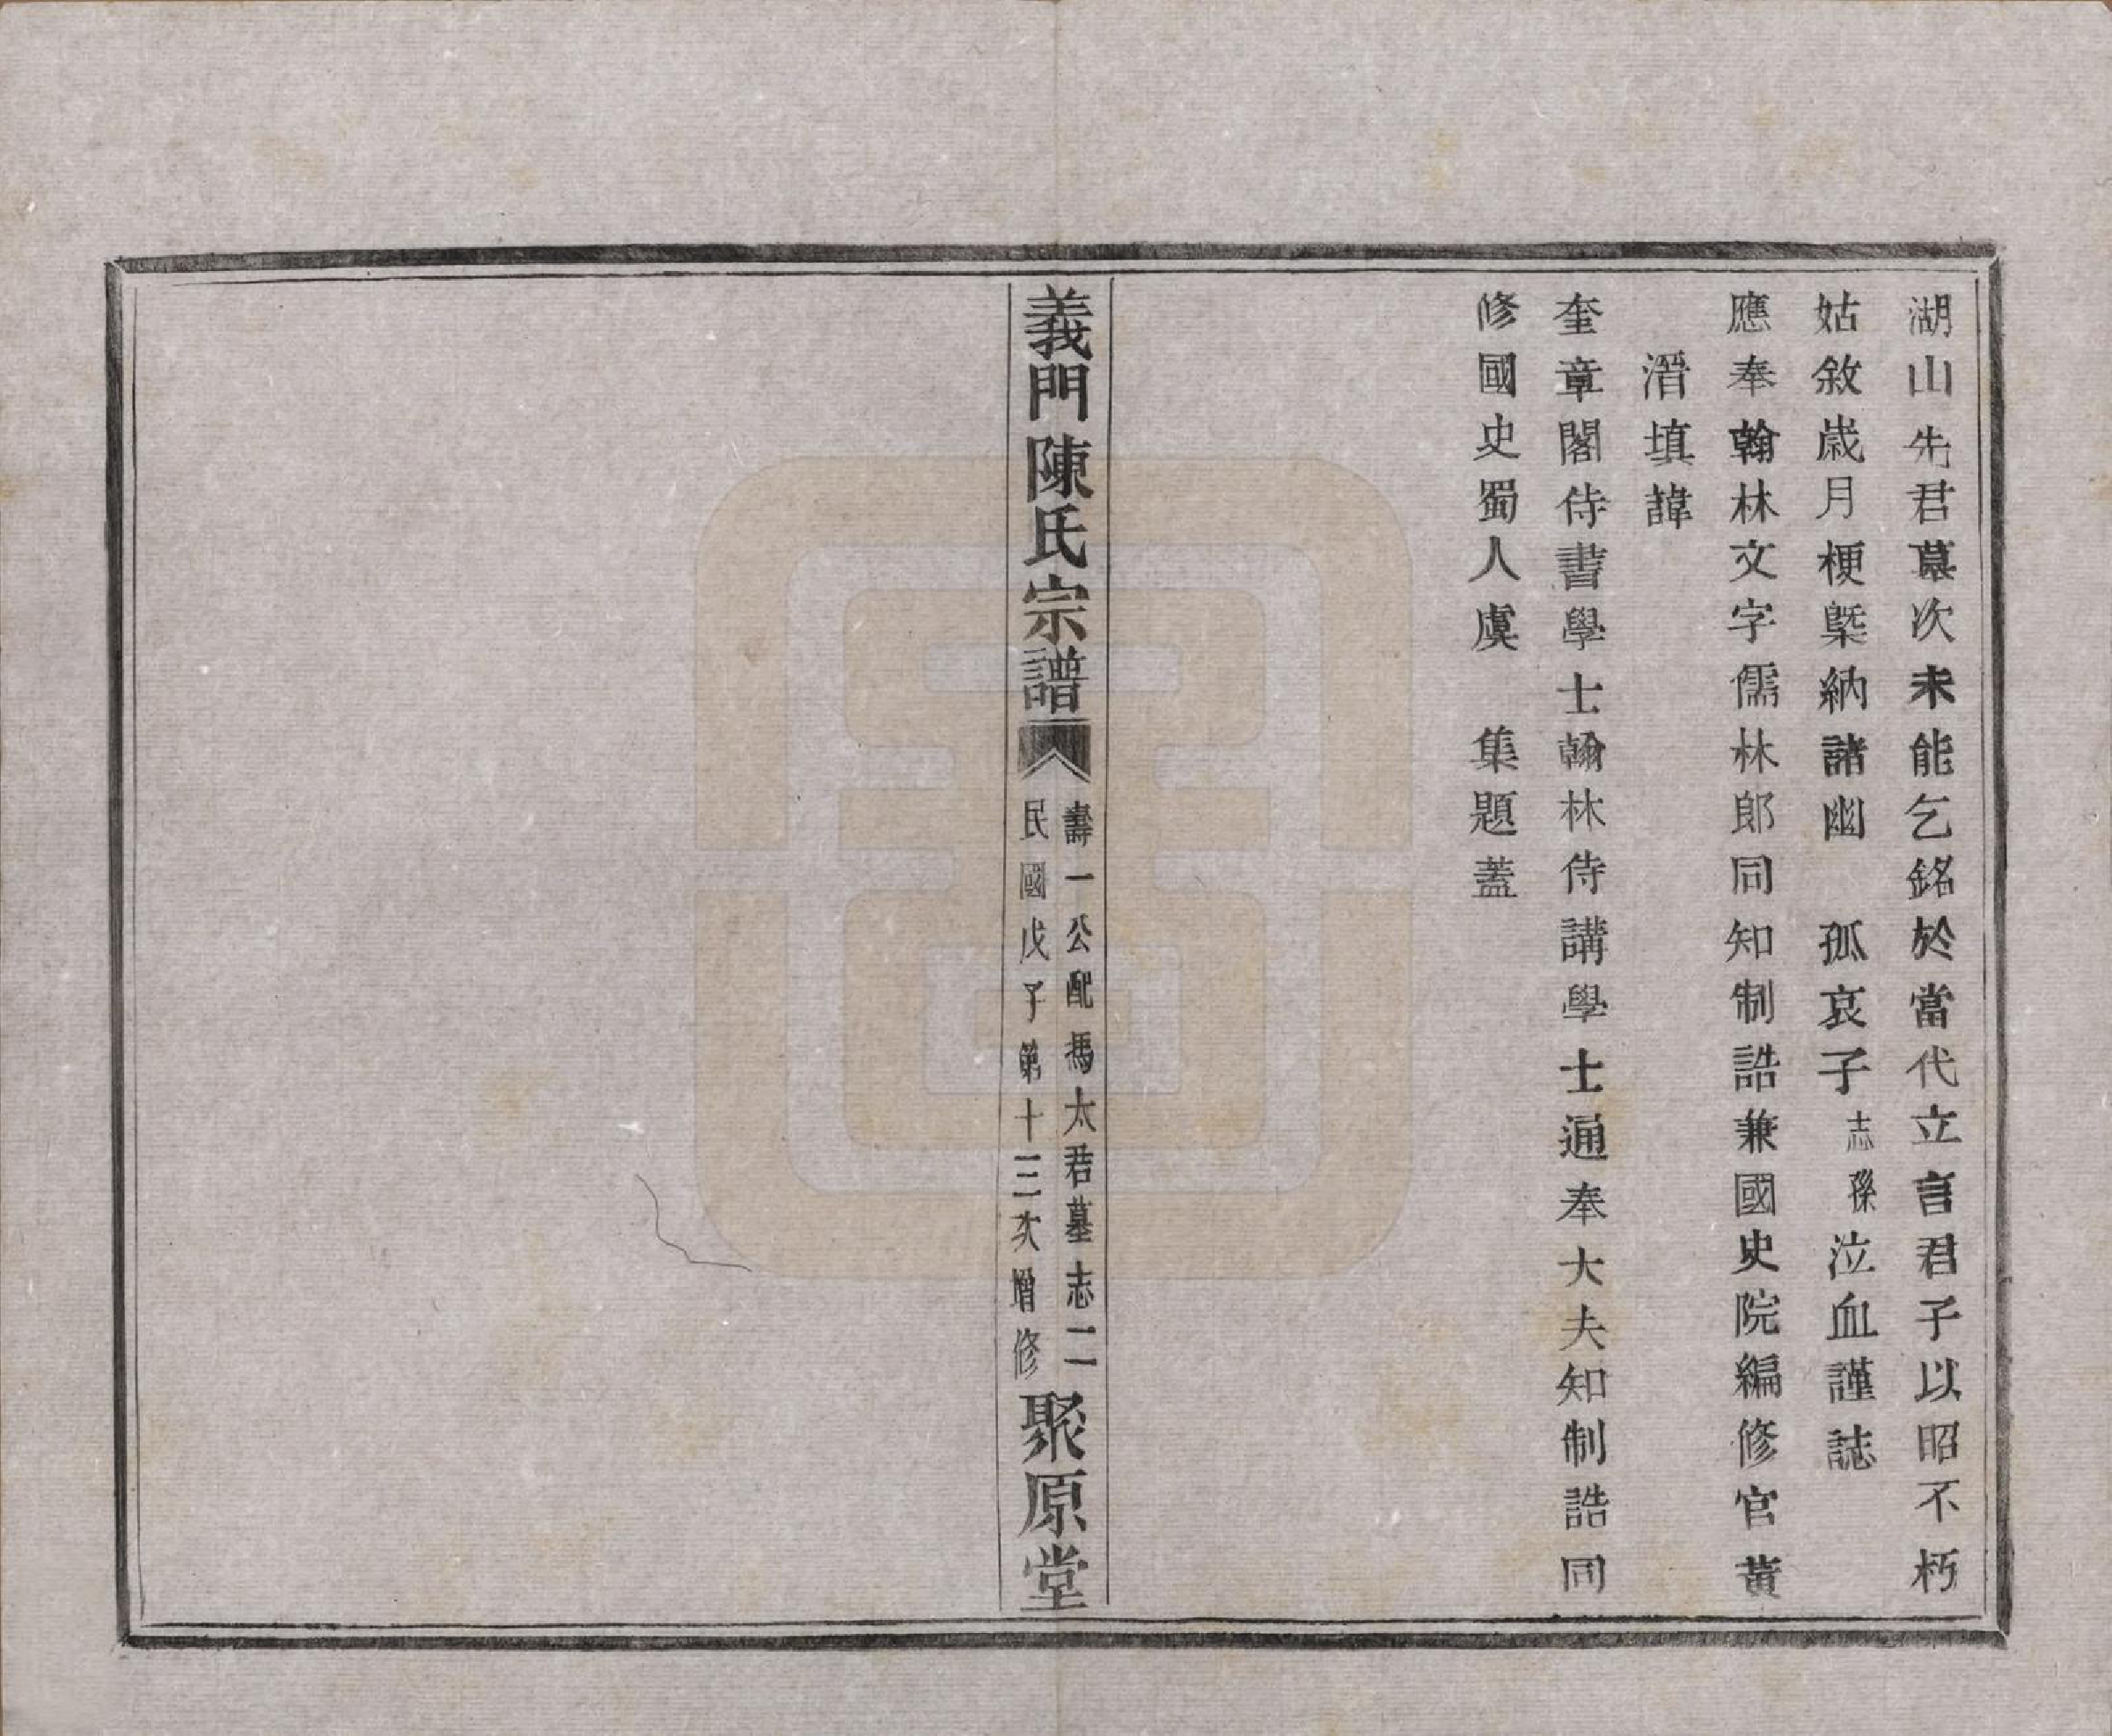 湖山先君墓次未能乞銘於當代立言君子以昭不朽
姑敘歲月梗槩納諸幽　孤哀子志孫泣血謹誌
應奉翰林文字儒林郎同知制誥兼國史院編修官黃
溍填諱
奎章閣侍書學士翰林侍講學士通奉大夫知制誥同
修國史蜀人虞　集題蓋
義門陳氏宗譜
壽一公配馮太君墓志二
民國戊子第十三次增修
聚原堂